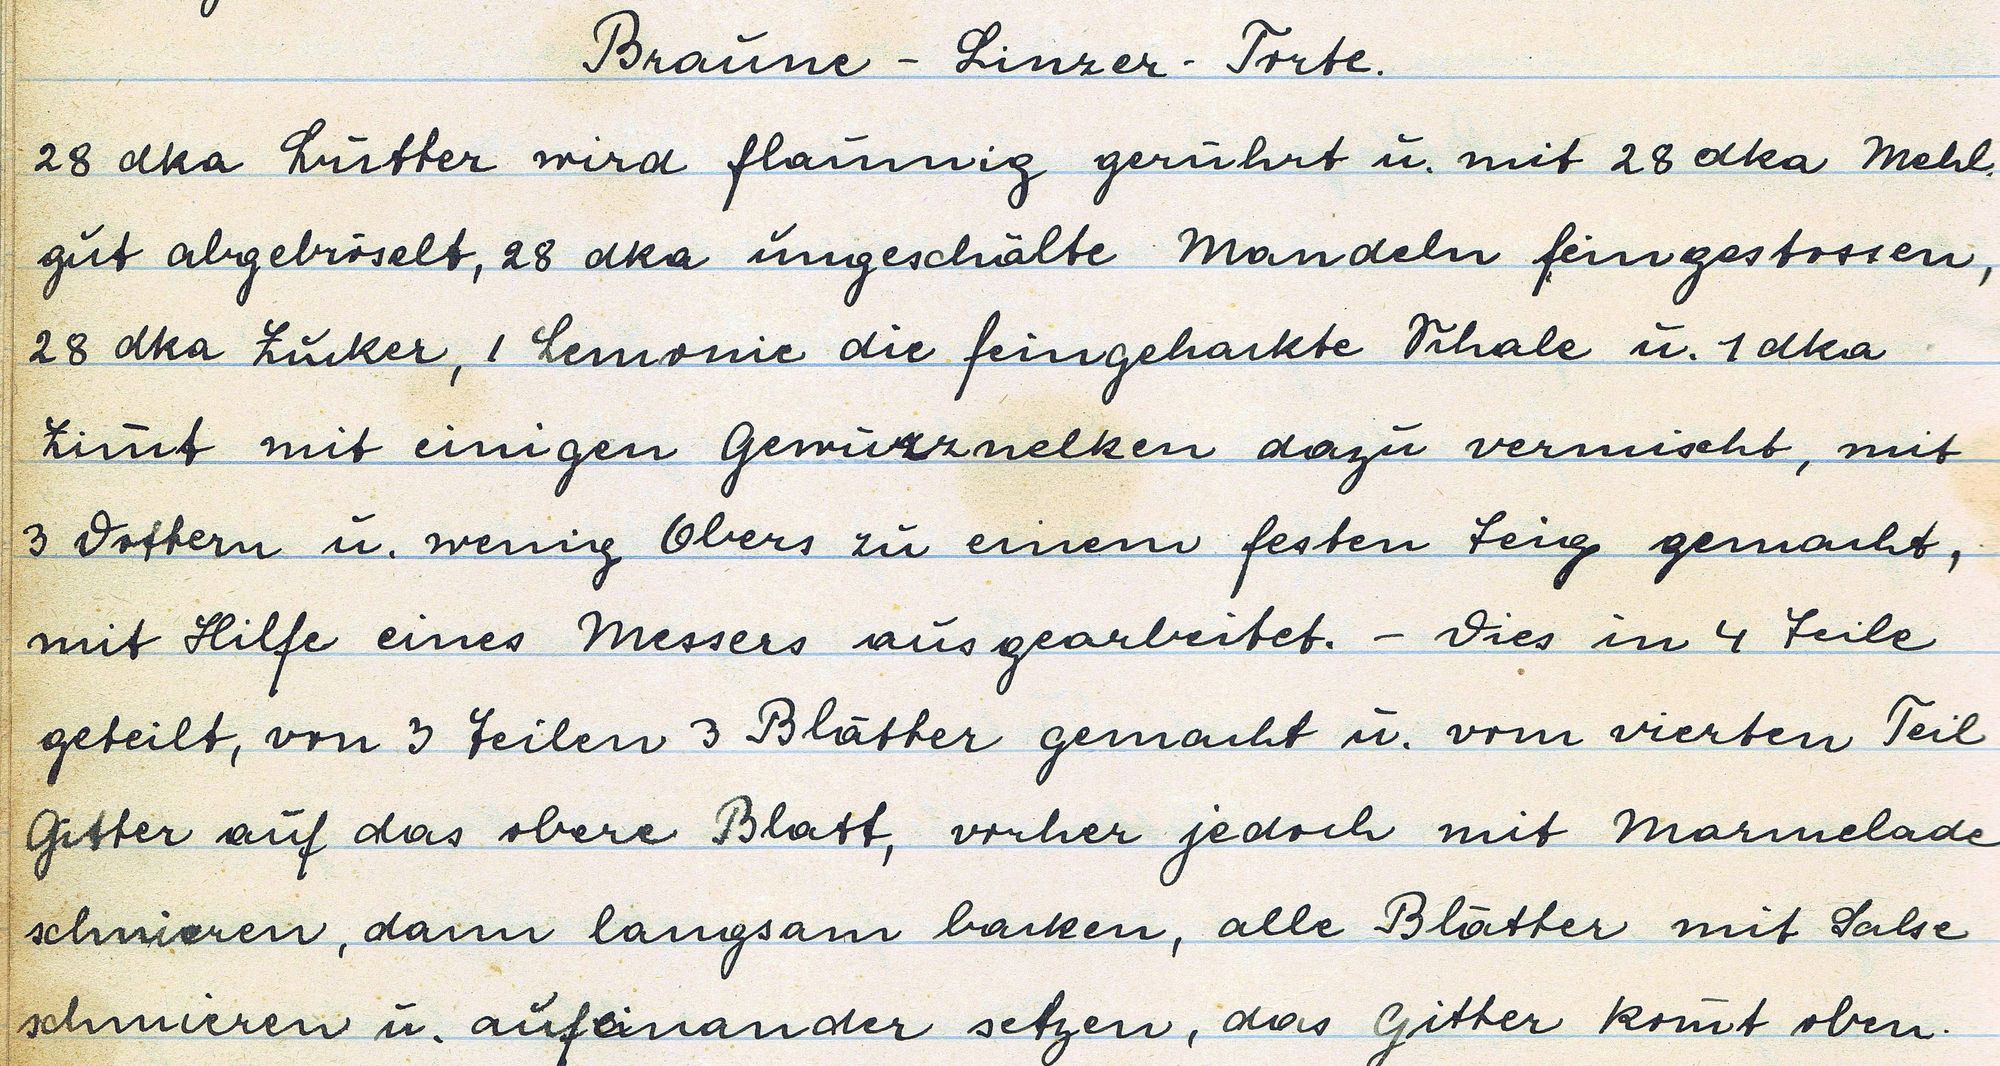 Braune - Linzer - Torte.
28 dka Butter wird flaumig gerührt u. mit 28 dka Mehl
gut abgebröselt, 28 dka ungeschälte Mandeln feingestossen,
28 dka Zucker, 1 Lemonie die feingehackte Schale u. 1 dka
Zim̅t mit einigen Gewürznelken dazu vermischt, mit
3 Dottern u. wenig Obers zu einem festen Teig gemacht,
mit Hilfe eines Messers ausgearbeitet. - Dies in 4 Teile
geteilt, von 3 Teilen 3 Blätter gemacht u. vom vierten Teil
Gitter auf das obere Blatt, vorher jedoch mit Marmelade
schmieren, dann langsam backen, alle Blätter mit Salse
schmieren u. aufeinander setzen, das Gitter kom̅t oben.